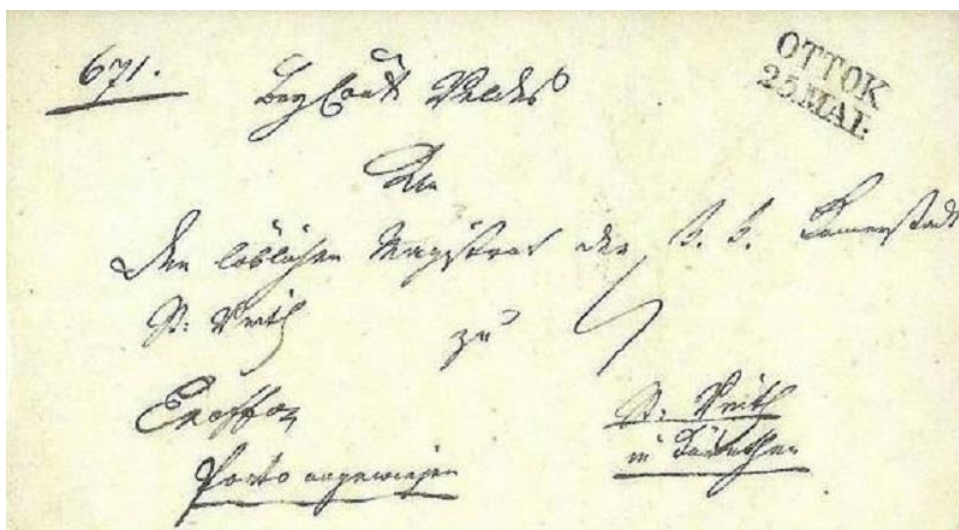 671.
OTTOK
25. MAI.
An
Den löblichen Magistrat der k. k. Kamerstadt
St: Veith
zu
Ex offo
St: Veith
Porto angewiesen
in Kärnthen